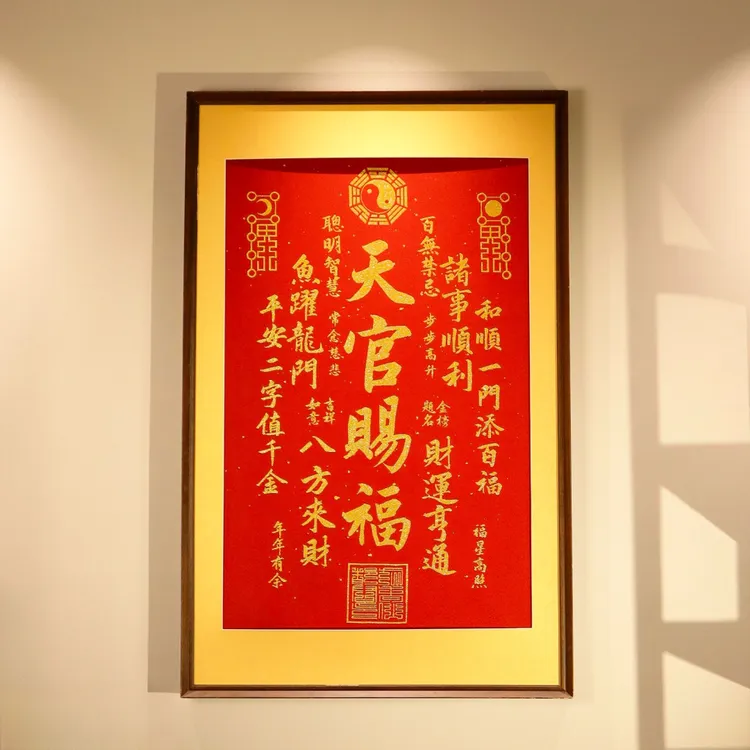 和順一門添百福
福星高照
諸事順利
百無禁忌
步步高升
金榜
題名
財運亨通
天官賜福
聰明智慧
常念慈悲
吉祥
如意
八方來財
魚躍龍門
平安二字值千金
年年有余